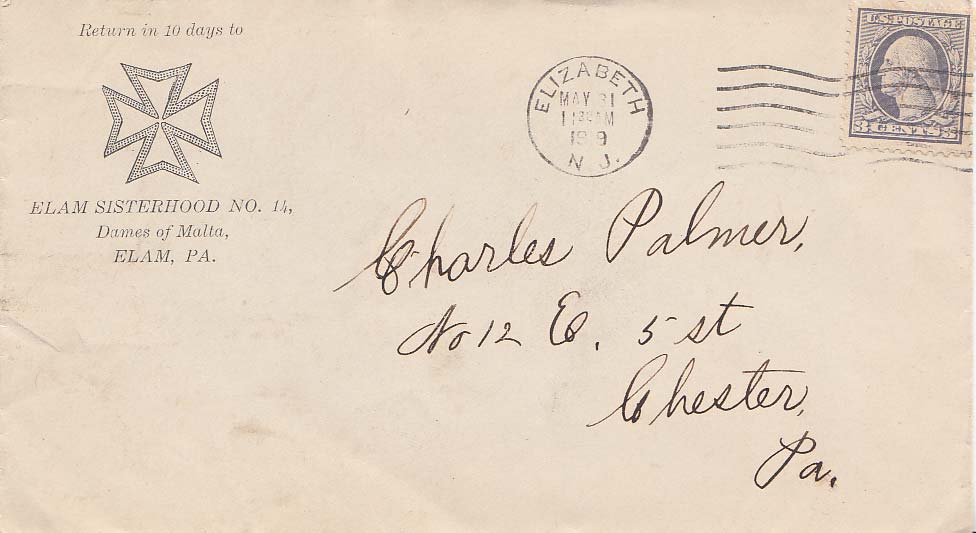 Return in 10 days to
ELAM SISTERHOOD NO. 14,
Dames of Malta,
ELAM, PA.
ELIZABETH
MAY 31
11 30 AM
1919
N. J.
U.S. POSTAGE
3 CENTS 3
Charles Palmer,
No 12 E. 5 st
Chester,
Pa.